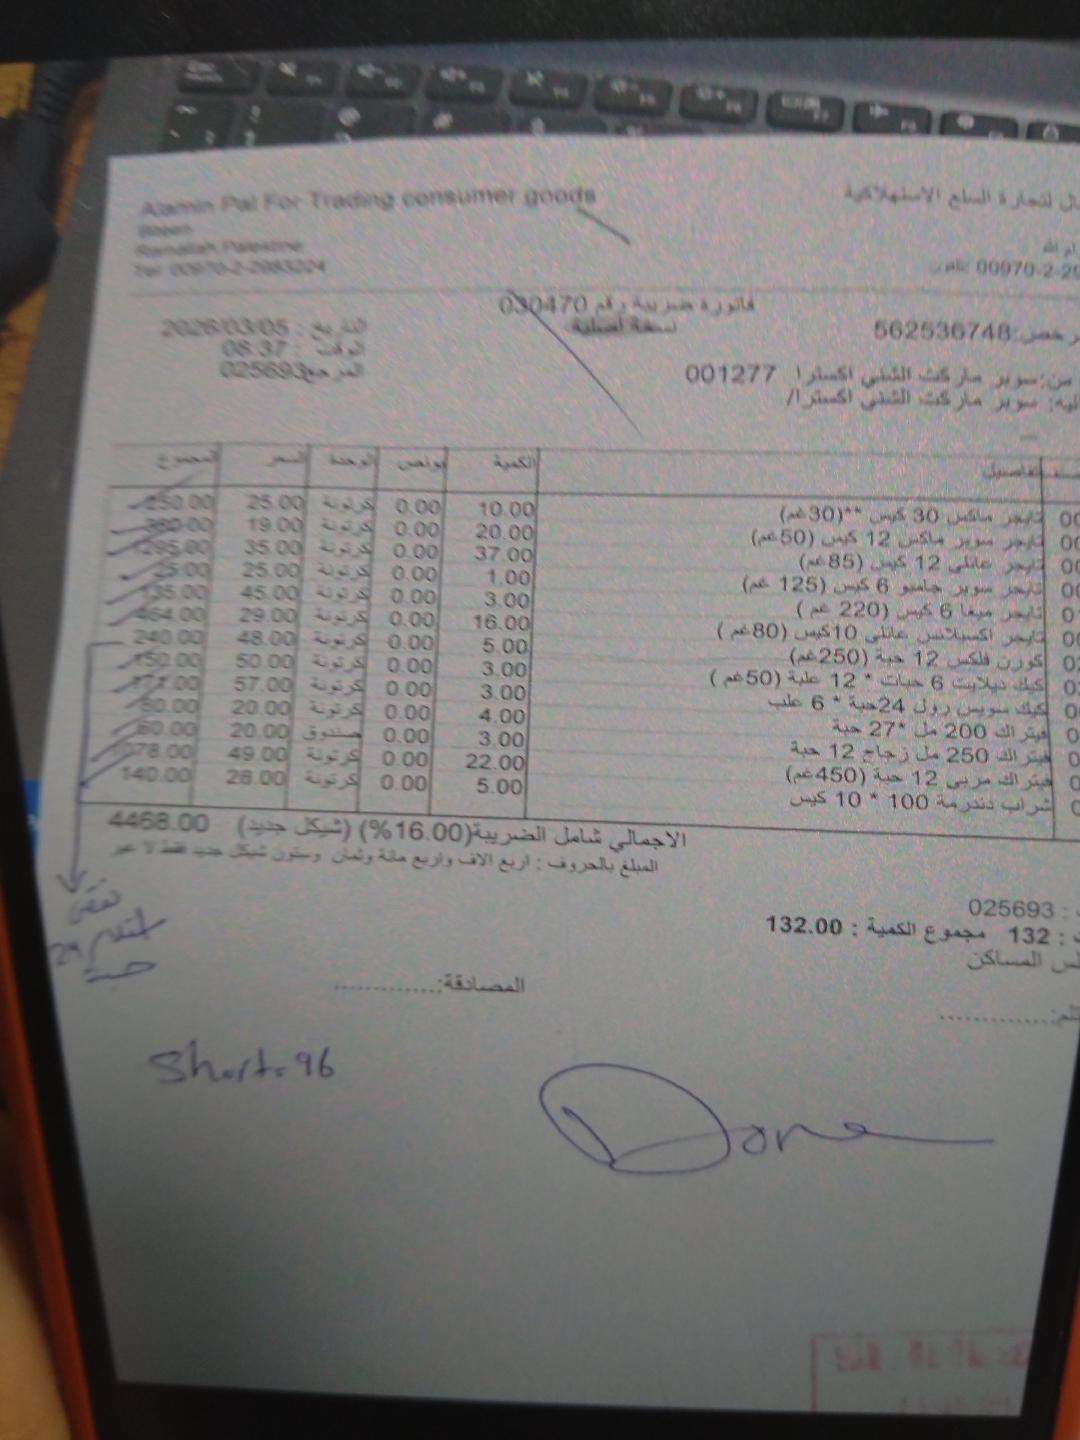 Alamin Pal For Trading consumer goods
ال لتجارة السلع الاستهلاكية
Ramallah Palestine
ام الله
Tel: 00970-2-2983224
تلفون: 00970-2-29
فاتورة ضريبية رقم 030470
نسخة اصلية
مرخص: 562536748
التاريخ : 2026/03/05
الوقت : 08:37
المرجع: 025693
من: سوبر ماركت الشني اكسترا 001277
اليه: سوبر ماركت الشني اكسترا/
التفاصيل الكمية بونص الوحدة السعر المجموع
تايجر ماكس 30 كيس **(30غم) 10.00 0.00 كرتونة 25.00 250.00
تايجر سوبر ماكس 12 كيس (50غم) 20.00 0.00 كرتونة 19.00 380.00
تايجر عائلي 12 كيس (85غم) 37.00 0.00 كرتونة 35.00 1295.00
تايجر سوبر جامبو 6 كيس (125 غم) 1.00 0.00 كرتونة 25.00 25.00
تايجر ميغا 6 كيس (220 غم ) 3.00 0.00 كرتونة 45.00 135.00
تايجر اكسبلانس عائلي 10كيس (80غم ) 16.00 0.00 كرتونة 29.00 464.00
كورن فلكس 12 حبة (250غم) 5.00 0.00 كرتونة 48.00 240.00
كيك ديلايت 6 حبات * 12 علبة (50غم ) 3.00 0.00 كرتونة 50.00 150.00
كيك سويس رول 24حبة * 6 علب 3.00 0.00 كرتونة 57.00 171.00
فيتراك 200 مل *27 حبة 4.00 0.00 كرتونة 20.00 80.00
فيتراك 250 مل زجاج 12 حبة 3.00 0.00 صندوق 20.00 60.00
فيتراك مربى 12 حبة (450غم) 22.00 0.00 كرتونة 49.00 1078.00
شراب دندرمة 100 * 10 كيس 5.00 0.00 كرتونة 28.00 140.00
الاجمالي شامل الضريبة(16.00%) (شيكل جديد) 4468.00
المبلغ بالحروف : اربع الاف واربع مائة وثمان وستون شيكل جديد فقط لا غير
: 025693
: 132 مجموع الكمية : 132.00
المصادقة:.............
Short-96
Done